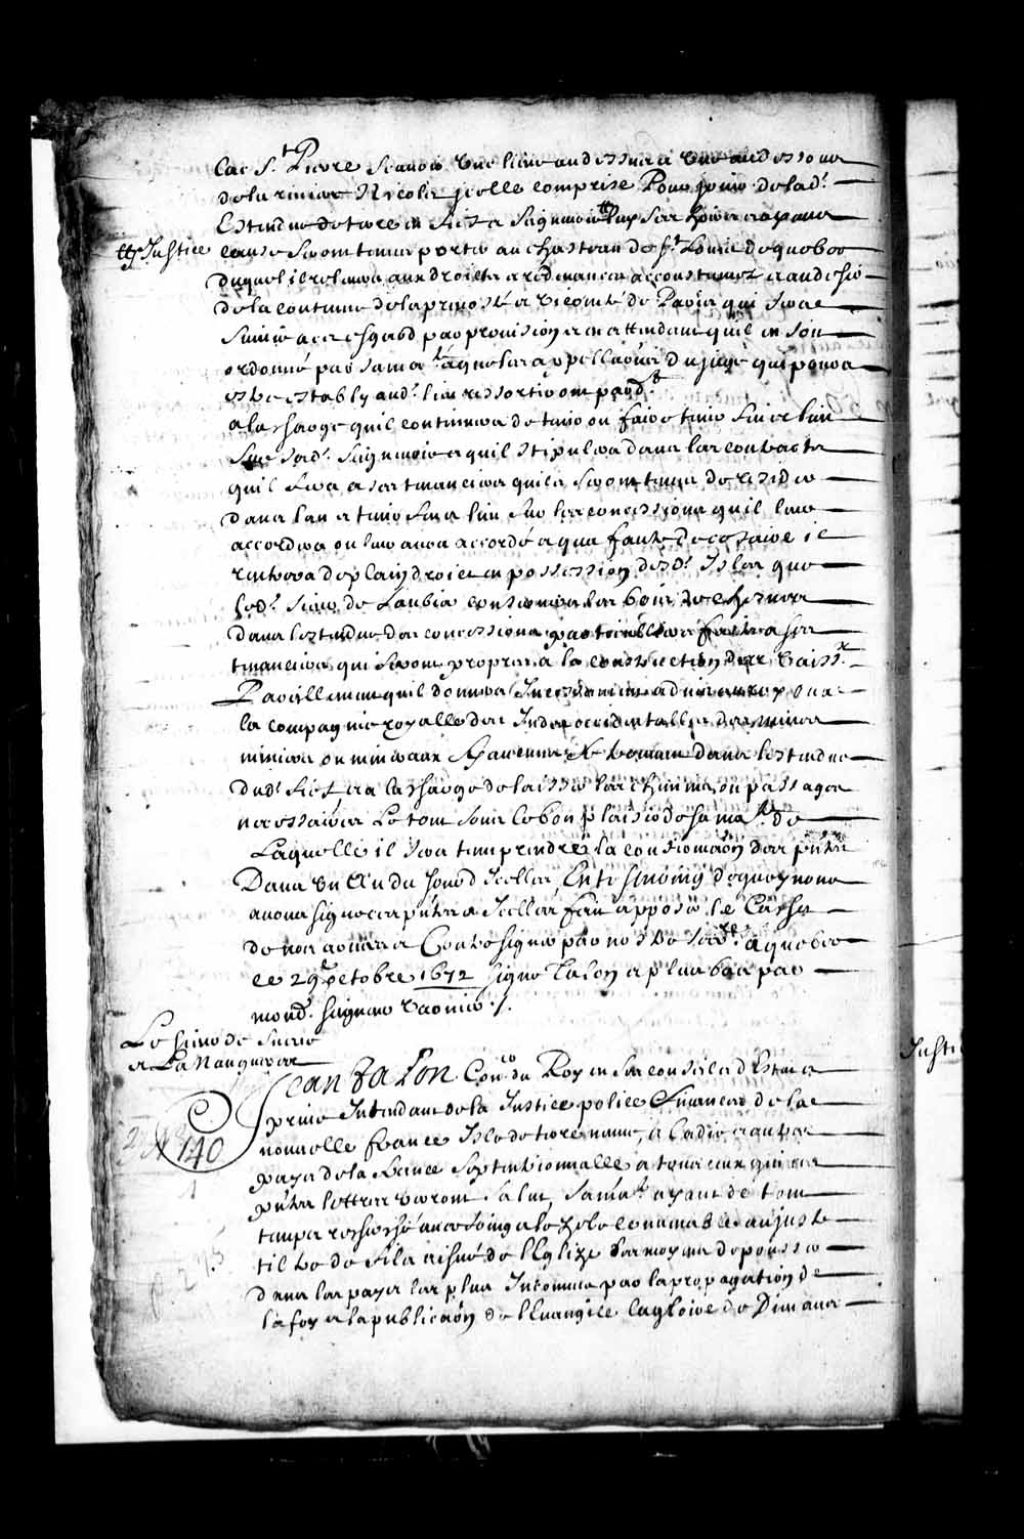 Lac St Pierre scauoir une lieue au dessus et une au dessous
de la riuiere Nicolet icelle comprise Pour jouir de lad.
Estendue de terre en fief et seigneurie luy ses hoirs et ayans
tt Justice
cause seront tenus porter au chasteau de St Louis de quebec
duquel il releuera aux droicts et redeuances accoustumez et au desir
de la coutume de la preuosté et vicomté de Paris qui sera
suiuie a cet esgard par prouision et en attendant quil en soit
ordonné par sa mate, et que les appellaōns du juge qui poura
estre estably aud. lieu ressortiront pard.
a la charge quil continuera de tenir ou faire tenir feu et lieu
sur sad. seigneurie et quil stipulera dans les contracts
quil fera a ses tenanciers quils seront tenus de resider
dans lan et tenir feu et lieu sur les concessions quil leur
accordera ou leur aura accordé et qua faute de ce faire il
rentrera de plain droict en possession desd. Isles que
led. sieur de Laubia conseruera les bois de chesnes
dans lestendue des concessions particulieres faites a ses
tenanciers qui seront propres a la construction des vaissx.
Pareillement quil donnera Incessamment aduis au roy ou a
la compagnie royalle des Indes occidentalles des mines
minieres ou mineraux sy aucuns se trouuent dans lestendue
dud. fief et a la charge de laisser les chemins ou passages
necessaires Le tout sous le bon plaisir de sa mate. de
Laquelle il sera tenu prendre la confirmaōn des pñtes
Dans un an du jour d'Icelles, En tesmoing de quoy nous
auons signé ces pñtes a Icelles fait apposer le Cachet
de nos armes et Contresigner par nostre secre. a quebec
ce 29e octobre 1672 signé Talon et plus bas par
mond. seigneur Varnier ./.
Le sieur de Sueve
et La Naugueres
140
Jean Talon Coner du Roy en ses conseils d'Estat et
priué Intendant de la Justice police et finances de la
nouuelle france Isle de terre neuue, a Cadie et autres
pays de la france Septentrionnalle a tous ceux qui ces
pñtes lettres verront salut, sa mate. ayant de tout
temps recherché auec soing et le zele conuenable au juste
tiltre de fils aisné de l'Eglize les moyens de pousser
dans les pays les plus Inconnus par la propagation de
la foy et la publicaōn de l'Euangile la gloire de Dieu auec
Justi